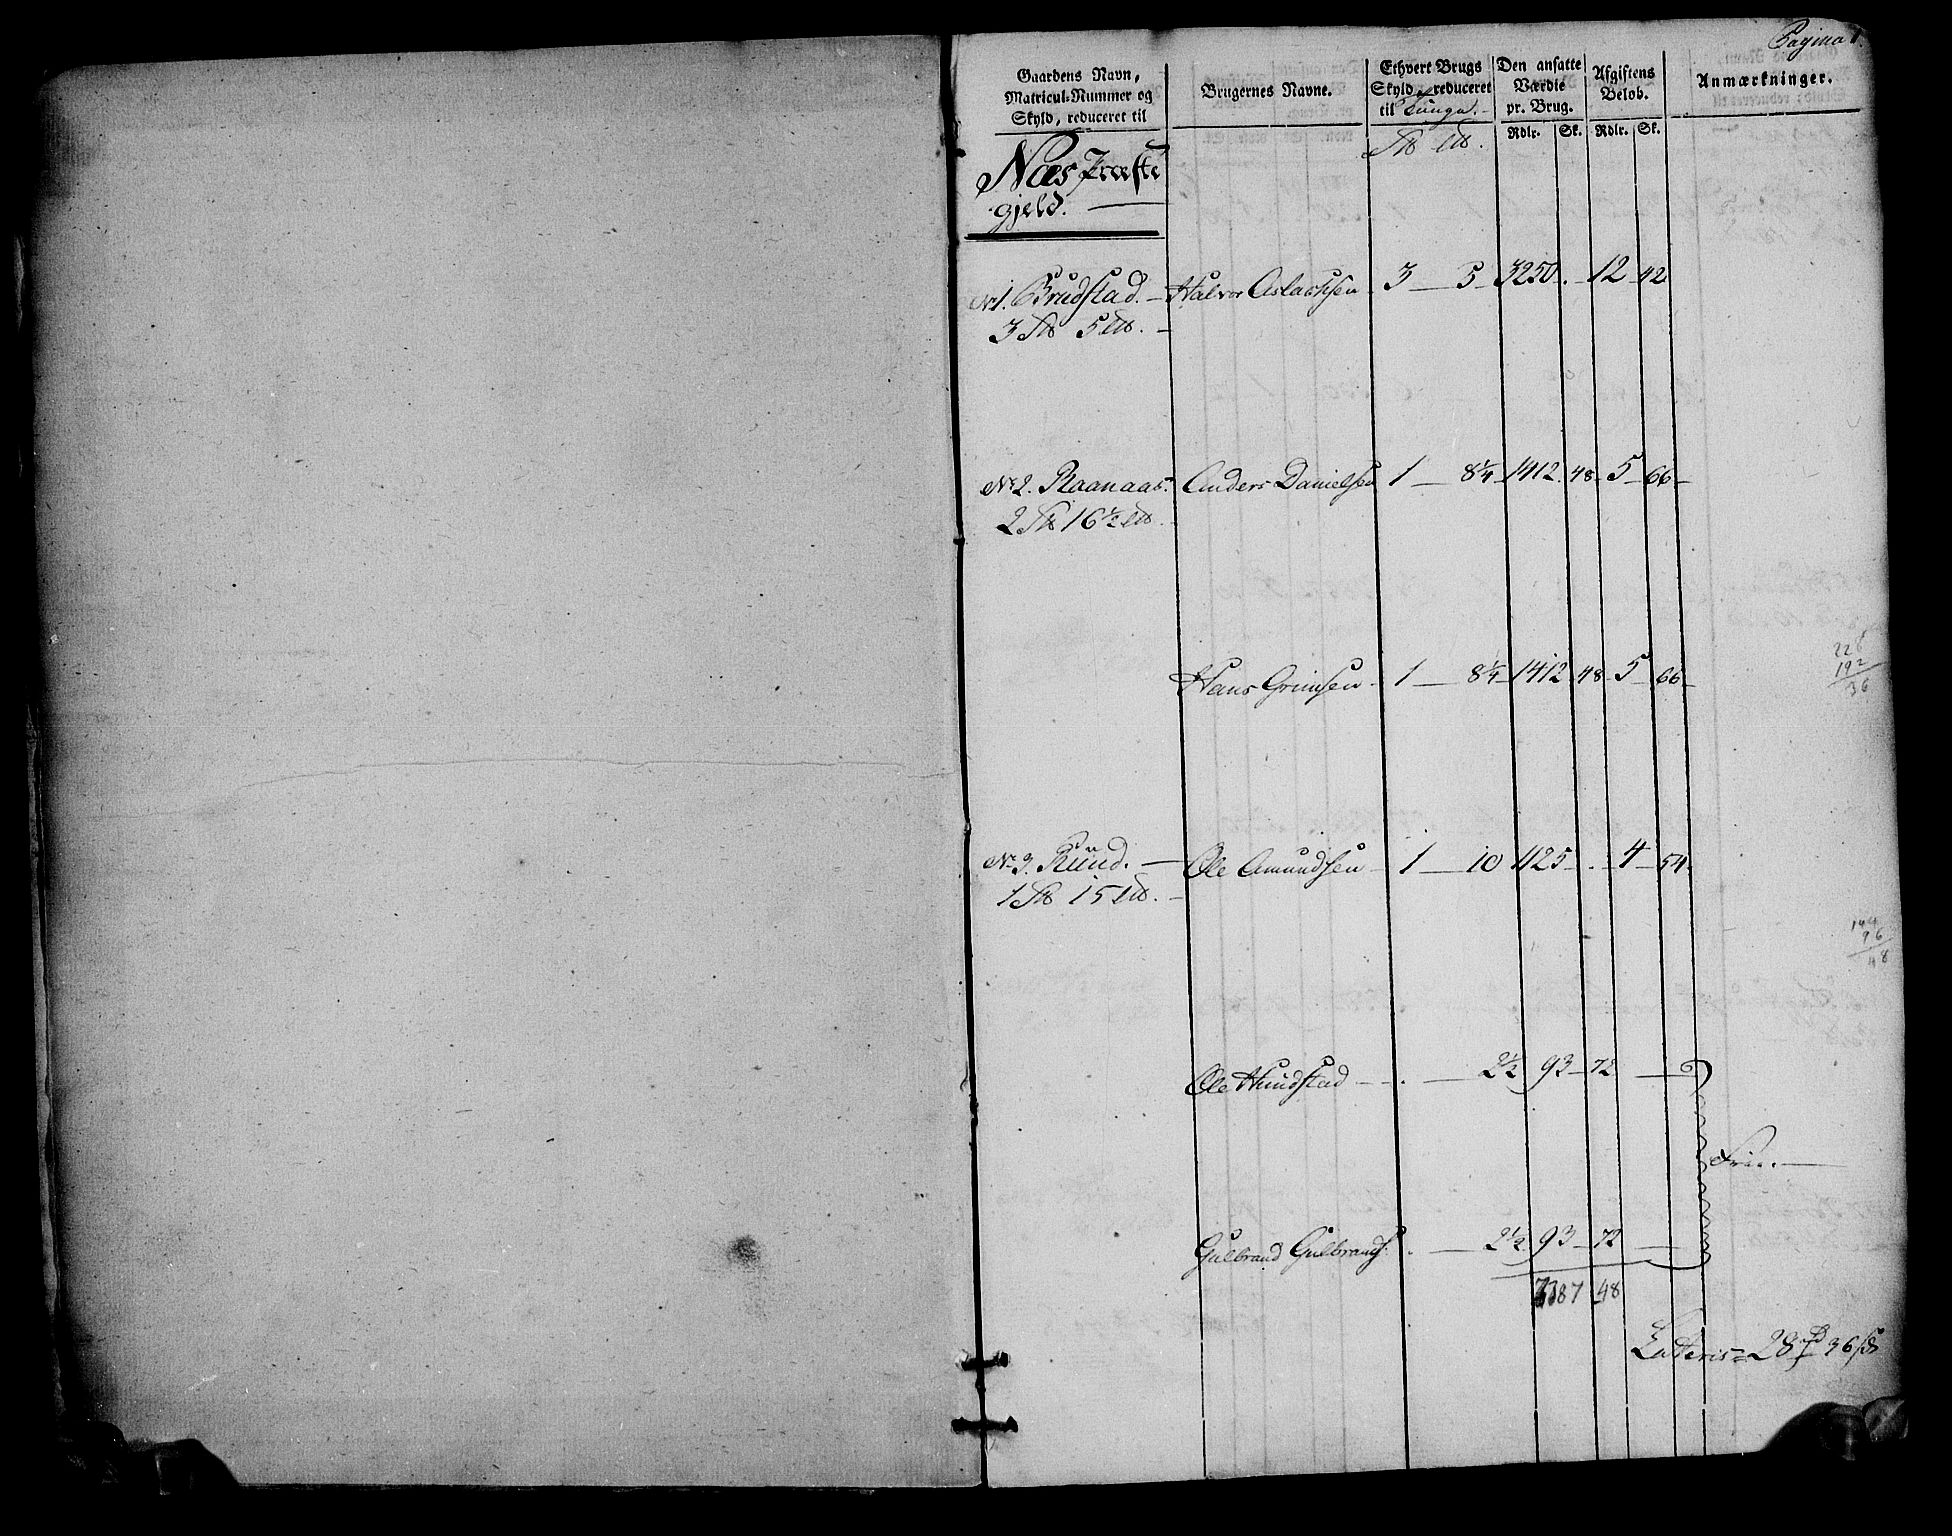 Pagina 1.
Gaardens Navn,
Matricul-Nummer og
Skyld, reduceret til
Brugernes Navne.
Ethvert Brugs
Skyld, reduceret
til Tunge.
Den ansatte
Værdie
pr. Brug.
Afgiftens
Beløb.
Anmærkninger.
Rdlr. Sk. Rdlr. Sk.
Næs Præste
gjeld.
No 1. Brudstad. Halvor Aslachsen 3 5 3250 . 12 42
3 5
No 2. Raanaas. Anders Danielsen 1 8¼ 1412 48 5 66
2 16½
Hans Grimsen 1 8¼ 1412 48 5 66
228
192
36
No 3. Rund. Ole Amundsen 1 10 1125 . 4 54
1 15
144
96
48
Ole Hundstad . 2½ 93 72
Fri.
Gulbrand Gulbrands. . 2½ 93 72
7387 48
Latteris 28 36